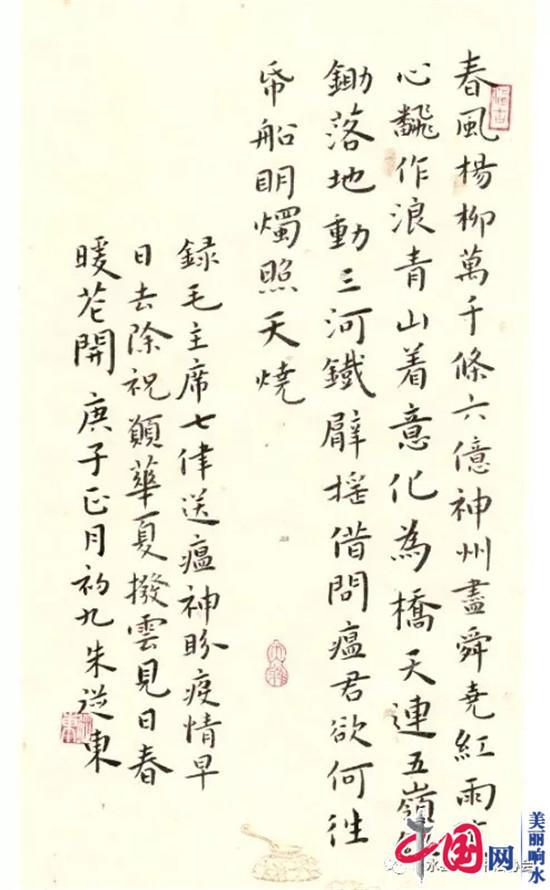 春風楊柳萬千條六億神州盡舜堯紅雨
心飜作浪青山着意化為橋天連五嶺
鋤落地動三河鐵臂摇借問瘟君欲何往
帋船明燭照天燒
録毛主席七律送瘟神盼疫情早
日去除祝願華夏撥雲見日春
暖花開庚子正月初九朱東
中国网
美丽响水